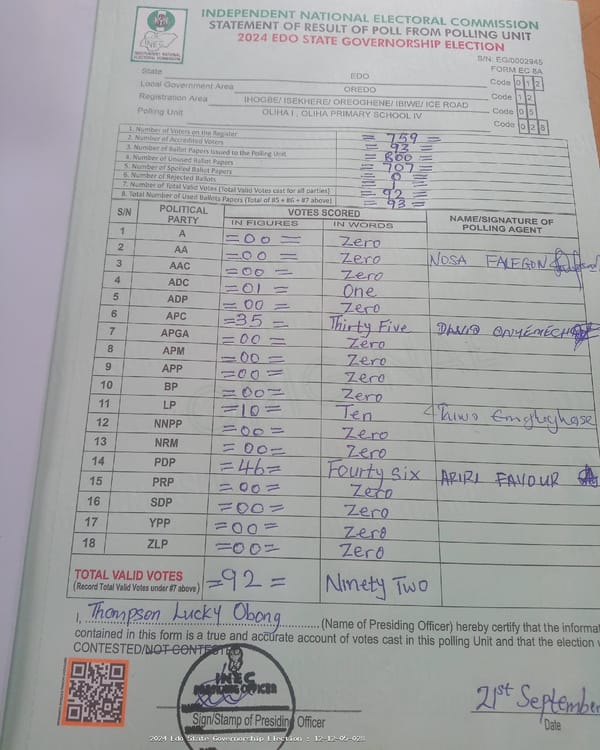 INDEPENDENT NATIONAL ELECTORAL COMMISSION
STATEMENT OF RESULT OF POLL FROM POLLING UNIT
2024 EDO STATE GOVERNORSHIP ELECTION
S/N: EG/0002945
FORM EC 8A
State EDO Code 0 1 2
Local Government Area OREDO Code 1 2
Registration Area IHOGBE/ ISEKHERE/ OREOGHENE/ IBIWE/ ICE ROAD Code 0 5
Polling Unit OLIHA I , OLIHA PRIMARY SCHOOL IV Code 0 2 8
1. Number of Voters on the Register = 759 =
2. Number of Accredited Voters = 93 =
3. Number of Ballot Papers Issued to the Polling Unit = 800 =
4. Number of Unused Ballot Papers = 707 =
5. Number of Spoiled Ballot Papers = 0 =
6. Number of Rejected Ballots = 1 =
7. Number of Total Valid Votes (Total Valid Votes cast for all parties) = 92 =
8. Total Number of Used Ballots Papers (Total of #5 + #6 + #7 above) = 93 =
S/N POLITICAL PARTY VOTES SCORED NAME/SIGNATURE OF POLLING AGENT
IN FIGURES IN WORDS
1 A =00= Zero
2 AA =00= Zero NOSA
3 AAC =00= Zero
4 ADC =01= One
5 ADP =00= Zero
6 APC =35= Thirty Five DAVID
7 APGA =00= Zero
8 APM =00= Zero
9 APP =00= Zero
10 BP =00= Zero
11 LP =10= Ten Taiwo
12 NNPP =00= Zero
13 NRM =00= Zero
14 PDP =46= Fourty six ARIRI FAVOUR
15 PRP =00= Zero
16 SDP =00= Zero
17 YPP =00= Zero
18 ZLP =00= Zero
TOTAL VALID VOTES =92= Ninety Two
(Record Total Valid Votes under #7 above)
I, Thompson Lucky Obong (Name of Presiding Officer) hereby certify that the informat
contained in this form is a true and accurate account of votes cast in this polling Unit and that the election w
CONTESTED/NOT CONTESTED
INEC
PRESIDING OFFICER
Sign/Stamp of Presiding Officer
21st September
Date
2024 Edo State Governorship Election : 12-12-05-028